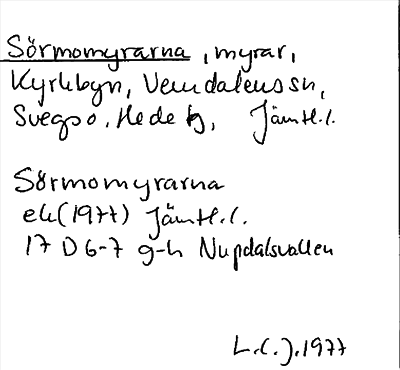 Sörmomyrarna, myrar,
Kyrkbyn, Vemdalens sn,
Svegs o. Hede tg, Jämtl. l.
Sörmomyrarna
ek (1977) Jämtl. l.
17 D 6-7 g-h Nupdalsvallen
L.C.J. 1977